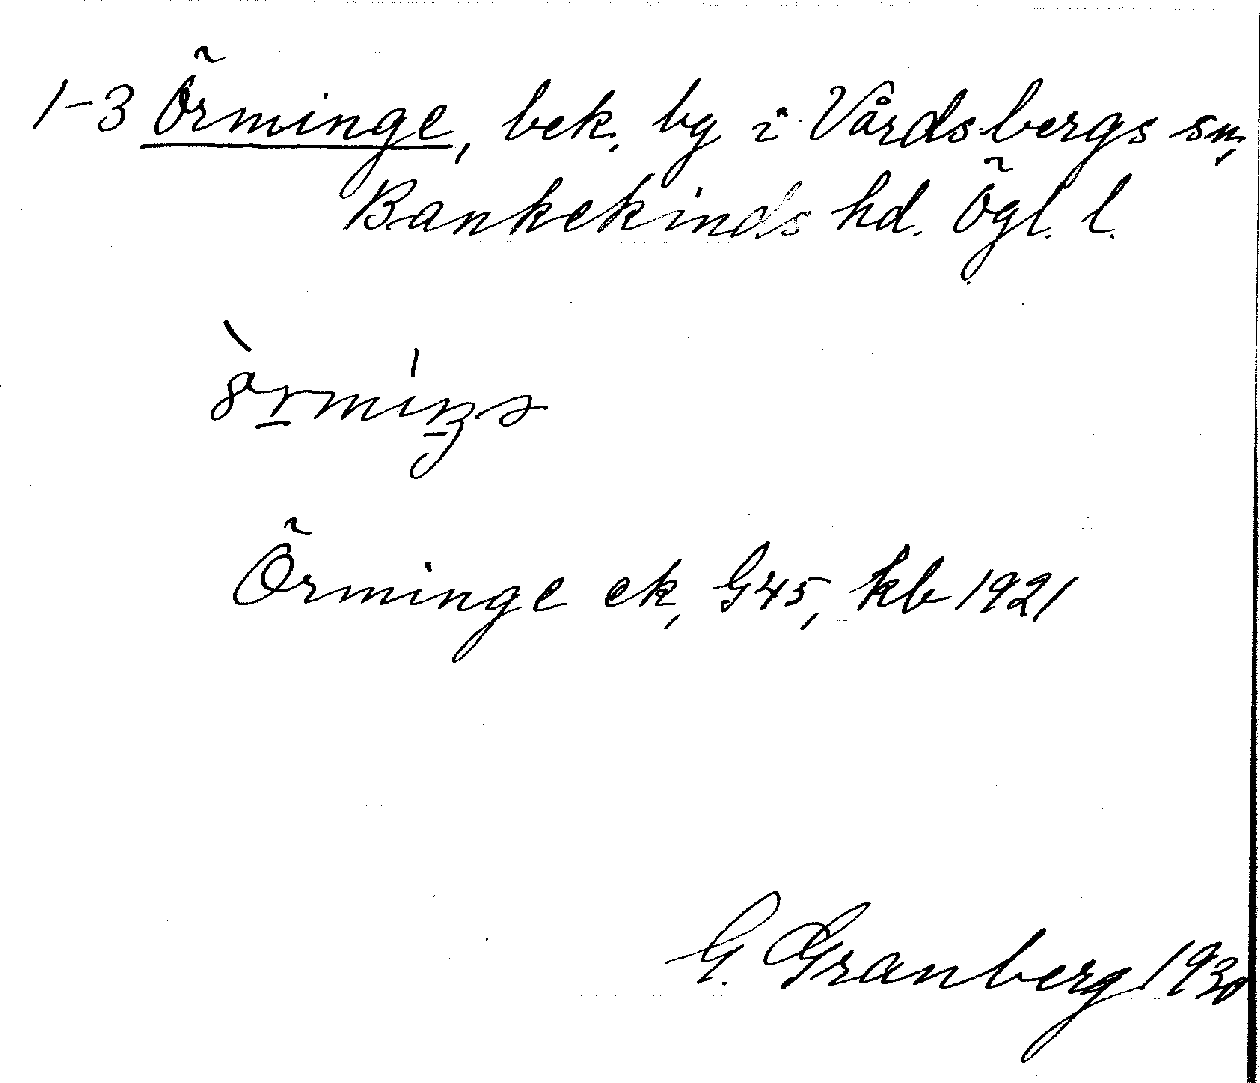 1-3 Örminge, bek. by i Vårdsbergs sn,
Bankekinds hd. Ögl. l.
Örminge ek, G45, kb 1921
G. Granberg 1930